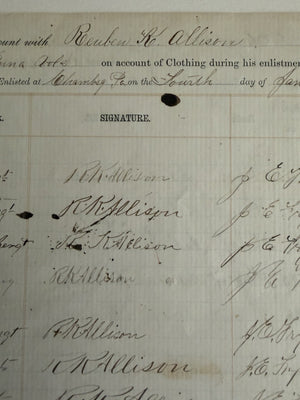 ount with Reuben K. Allison
nna Vols on account of Clothing during his enlistment
Enlisted at Chambg Pa on the Fourth day of Jan
K. SIGNATURE.
gt R K Allison J E
gt R K Allison J E
Sergt R K Allison J E
R K Allison J E
gt R K Allison J. E.
ts R K Allison J. E.
R K